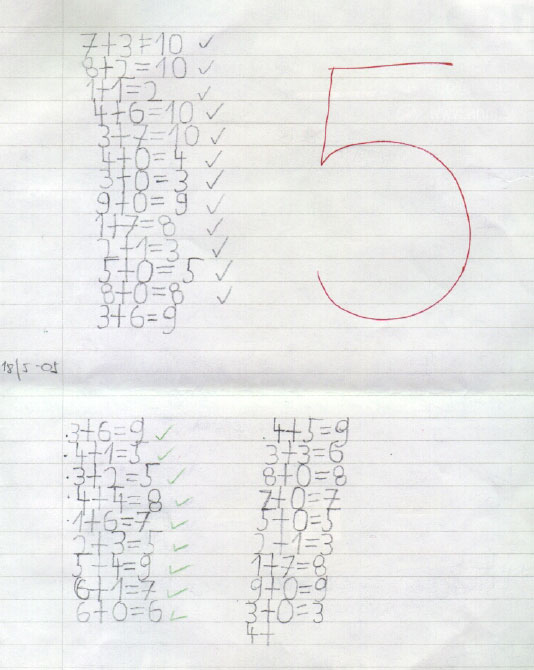 7+3=10 ✓
8+2=10 ✓
1+1=2 ✓
4+6=10 ✓
3+7=10 ✓
4+0=4 ✓
3+0=3 ✓
9+0=9 ✓
1+7=8 ✓
2+1=3 ✓
5+0=5 ✓
8+0=8 ✓
3+6=9
5
18/5-05
3+6=9 ✓
4+1=5 ✓
3+2=5 ✓
4+4=8 ✓
1+6=7 ✓
2+3=5 ✓
5+4=9 ✓
6+1=7 ✓
6+0=6 ✓
4+5=9
3+3=6
8+0=8
7+0=7
5+0=5
2+1=3
1+7=8
9+0=9
3+0=3
4+